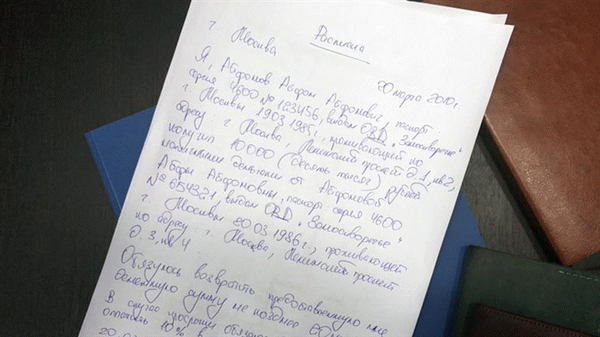 г. Москва Расписка
20 марта 2010 г.
Я, Абфомов Абфом Абфомович, паспорт:
серия 4600 № 123456, выдан ОВД "Замоскворечье"
г. Москвы 19.03.1985 г., проживающий по
адресу г. Москва, Ленинский проспект д. 1, кв. 2,
получил 10000 (десять тысяч) рублей
наличными деньгами от Абфомовой
Абфы Абфомовны, паспорт серия 4600
№ 654321, выдан ОВД "Замоскворечье"
г. Москвы 20.03.1986 г., проживающей
по адресу: г. Москва, Ленинский проспект
д. 3, кв. 4
Обязуюсь возвратить предоставленную мне
денежную сумму не позднее
В случае просрочки
10% в
20